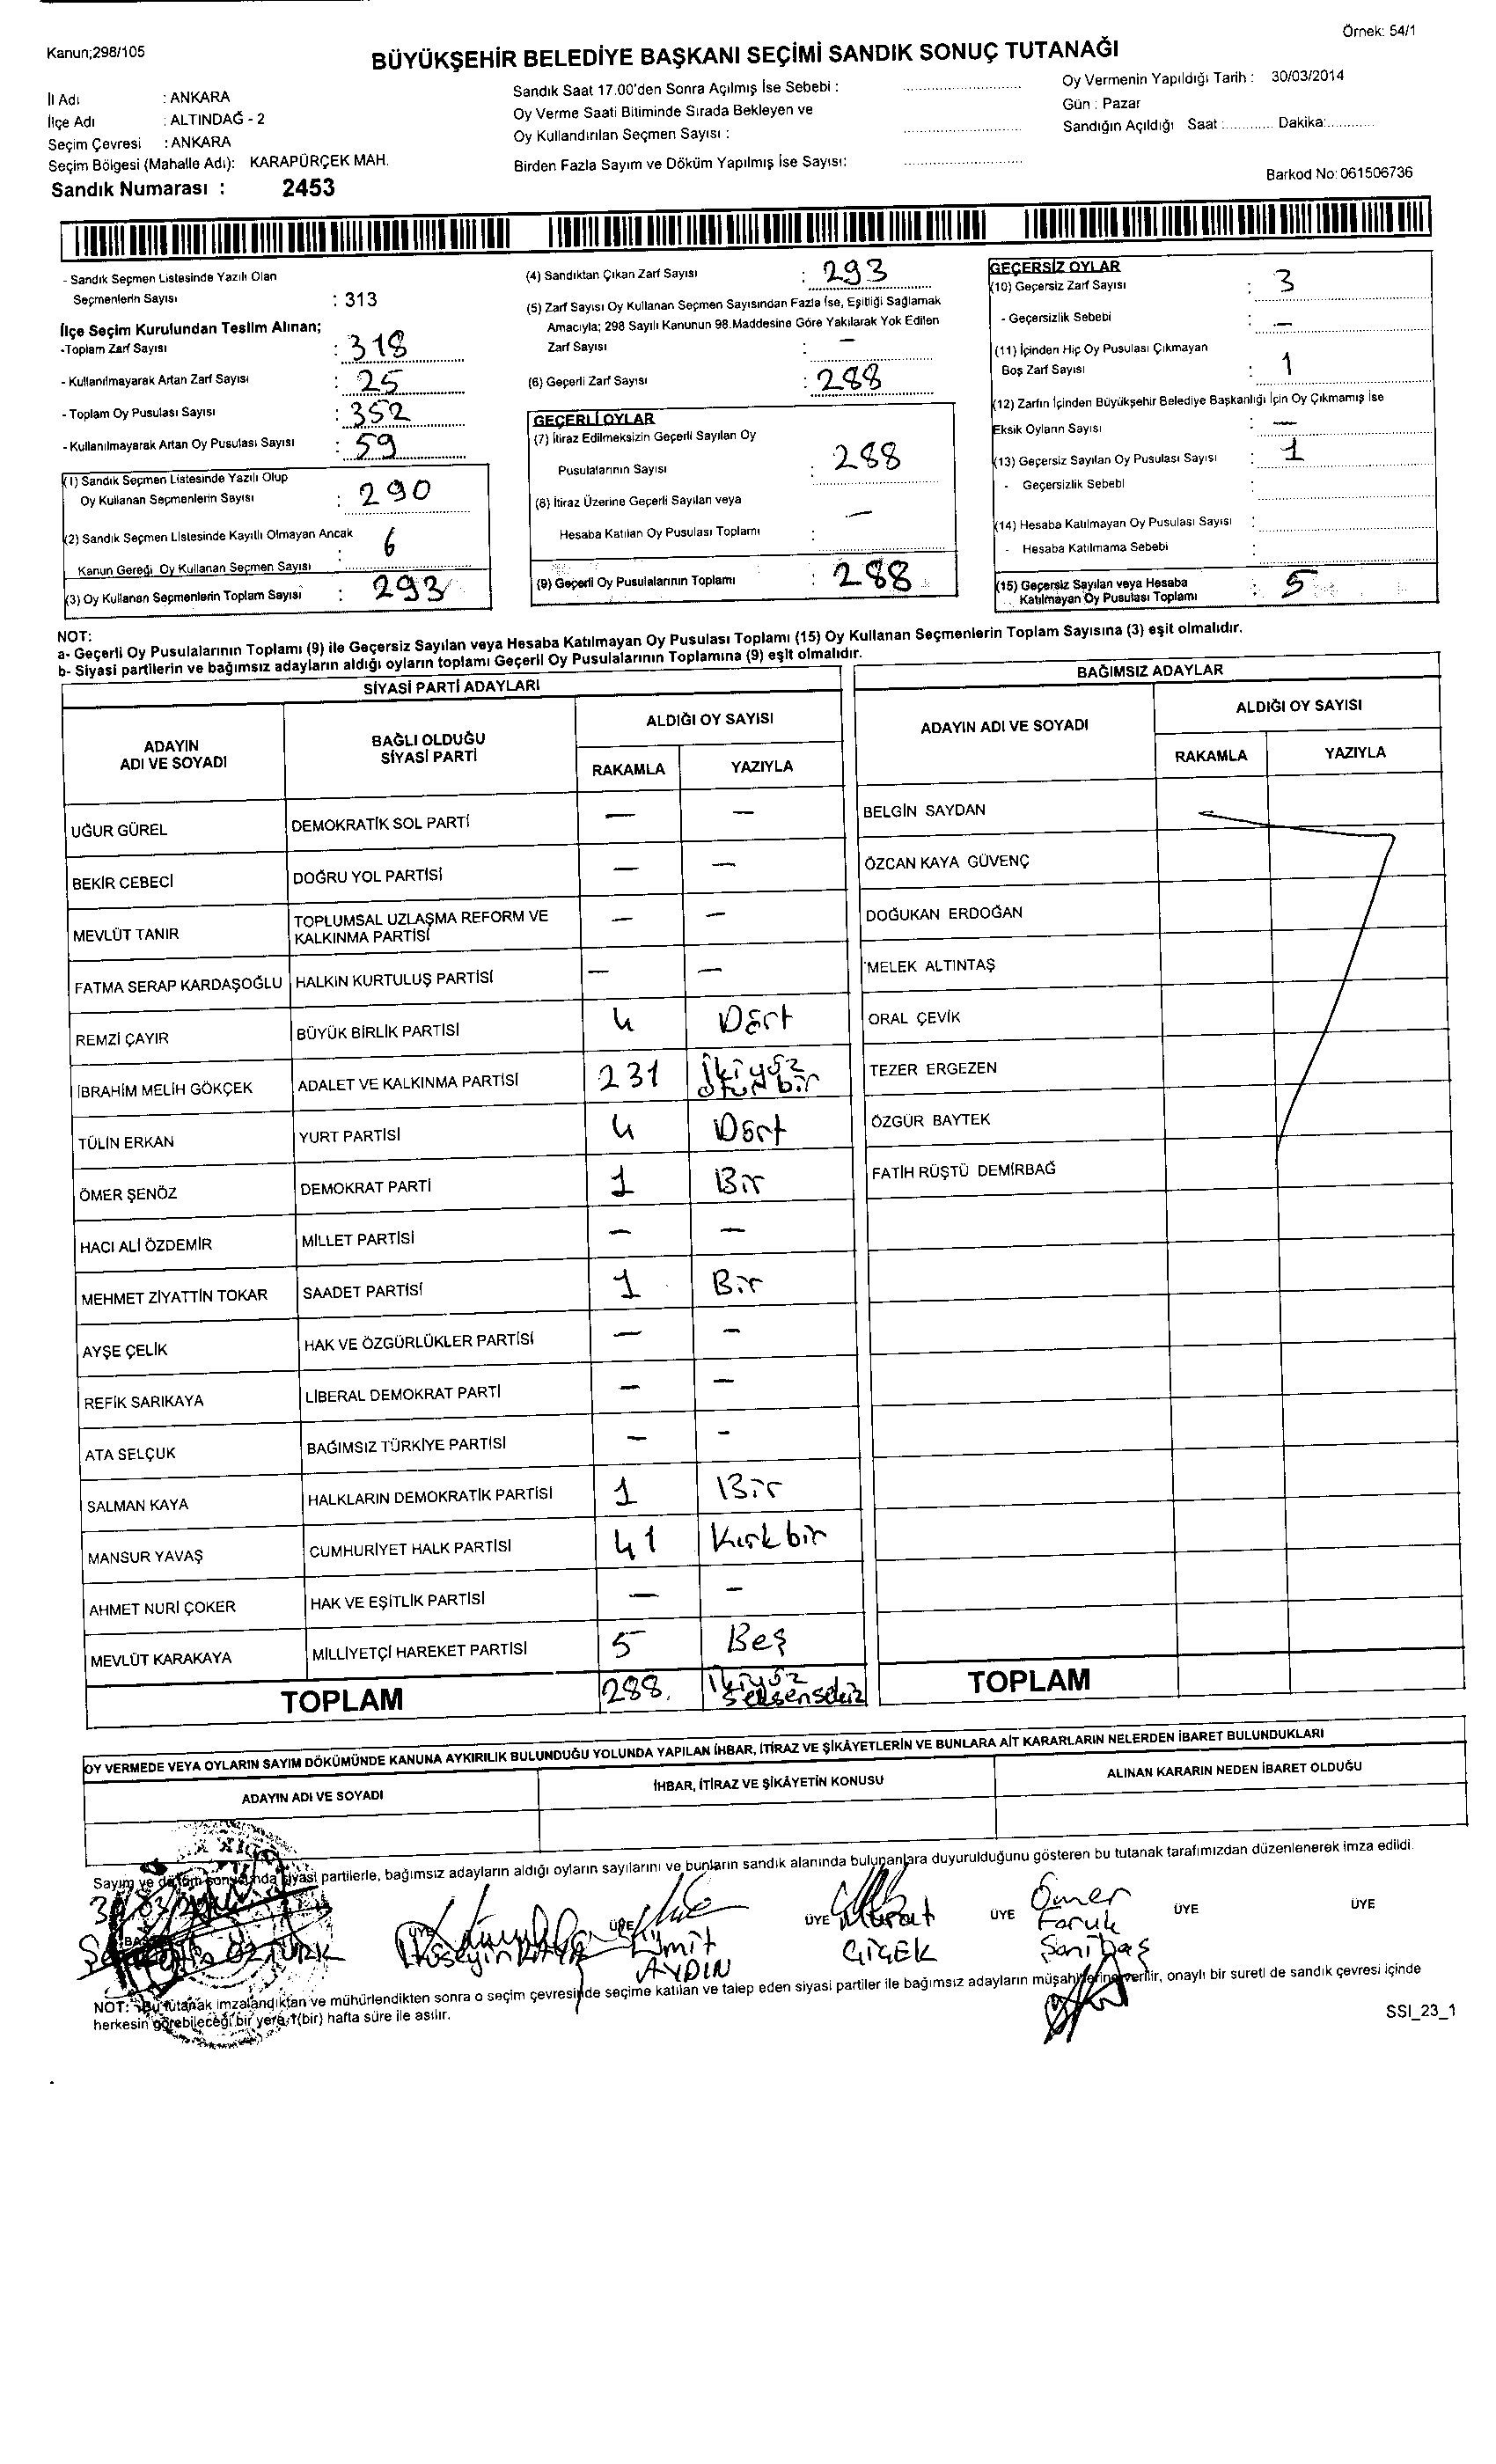 Örnek: 54/1
Kanun;298/105
BÜYÜKŞEHİR BELEDİYE BAŞKANI SEÇİMİ SANDIK SONUÇ TUTANAĞI
İl Adı : ANKARA
İlçe Adı : ALTINDAĞ - 2
Seçim Çevresi : ANKARA
Seçim Bölgesi (Mahalle Adı): KARAPÜRÇEK MAH.
Sandık Numarası : 2453
Sandık Saat 17.00'den Sonra Açılmış İse Sebebi :
Oy Verme Saati Bitiminde Sırada Bekleyen ve
Oy Kullandırılan Seçmen Sayısı :
Birden Fazla Sayım ve Döküm Yapılmış İse Sayısı:
Oy Vermenin Yapıldığı Tarih : 30/03/2014
Gün : Pazar
Sandığın Açıldığı Saat :............ Dakika:............
Barkod No: 061506736
- Sandık Seçmen Listesinde Yazılı Olan
Seçmenlerin Sayısı : 313
İlçe Seçim Kurulundan Teslim Alınan;
-Toplam Zarf Sayısı : 318
- Kullanılmayarak Artan Zarf Sayısı : 25
- Toplam Oy Pusulası Sayısı : 352
- Kullanılmayarak Artan Oy Pusulası Sayısı : 59
(1) Sandık Seçmen Listesinde Yazılı Olup
Oy Kullanan Seçmenlerin Sayısı : 290
(2) Sandık Seçmen Listesinde Kayıtlı Olmayan Ancak
Kanun Gereği Oy Kullanan Seçmen Sayısı : 6
(3) Oy Kullanan Seçmenlerin Toplam Sayısı : 293
(4) Sandıktan Çıkan Zarf Sayısı : 293
(5) Zarf Sayısı Oy Kullanan Seçmen Sayısından Fazla İse, Eşitliği Sağlamak
Amacıyla; 298 Sayılı Kanunun 98.Maddesine Göre Yakılarak Yok Edilen
Zarf Sayısı : —
(6) Geçerli Zarf Sayısı : 288
GEÇERLİ OYLAR
(7) İtiraz Edilmeksizin Geçerli Sayılan Oy
Pusulalarının Sayısı : 288
(8) İtiraz Üzerine Geçerli Sayılan veya
Hesaba Katılan Oy Pusulası Toplamı : —
(9) Geçerli Oy Pusulalarının Toplamı : 288
GEÇERSİZ OYLAR
(10) Geçersiz Zarf Sayısı : 3
- Geçersizlik Sebebi : —
(11) İçinden Hiç Oy Pusulası Çıkmayan
Boş Zarf Sayısı : 1
(12) Zarfın İçinden Büyükşehir Belediye Başkanlığı İçin Oy Çıkmamış İse
Eksik Oyların Sayısı : —
(13) Geçersiz Sayılan Oy Pusulası Sayısı : 1
- Geçersizlik Sebebi :
(14) Hesaba Katılmayan Oy Pusulası Sayısı :
- Hesaba Katılmama Sebebi :
(15) Geçersiz Sayılan veya Hesaba
Katılmayan Oy Pusulası Toplamı : 5
NOT:
a- Geçerli Oy Pusulalarının Toplamı (9) ile Geçersiz Sayılan veya Hesaba Katılmayan Oy Pusulası Toplamı (15) Oy Kullanan Seçmenlerin Toplam Sayısına (3) eşit olmalıdır.
b- Siyasi partilerin ve bağımsız adayların aldığı oyların toplamı Geçerli Oy Pusulalarının Toplamına (9) eşit olmalıdır.
SİYASİ PARTİ ADAYLARI
ADAYIN ADI VE SOYADI BAĞLI OLDUĞU SİYASİ PARTİ ALDIĞI OY SAYISI
RAKAMLA YAZIYLA
UĞUR GÜREL DEMOKRATİK SOL PARTİ — —
BEKİR CEBECİ DOĞRU YOL PARTİSİ — —
MEVLÜT TANIR TOPLUMSAL UZLAŞMA REFORM VE KALKINMA PARTİSİ — —
FATMA SERAP KARDAŞOĞLU HALKIN KURTULUŞ PARTİSİ — —
REMZİ ÇAYIR BÜYÜK BİRLİK PARTİSİ 4 Dört
İBRAHİM MELİH GÖKÇEK ADALET VE KALKINMA PARTİSİ 231 İkiyüz otuz bir
TÜLİN ERKAN YURT PARTİSİ 4 Dört
ÖMER ŞENÖZ DEMOKRAT PARTİ 1 Bir
HACI ALİ ÖZDEMİR MİLLET PARTİSİ — —
MEHMET ZİYATTİN TOKAR SAADET PARTİSİ 1 Bir
AYŞE ÇELİK HAK VE ÖZGÜRLÜKLER PARTİSİ — —
REFİK SARIKAYA LİBERAL DEMOKRAT PARTİ — —
ATA SELÇUK BAĞIMSIZ TÜRKİYE PARTİSİ — —
SALMAN KAYA HALKLARIN DEMOKRATİK PARTİSİ 1 Bir
MANSUR YAVAŞ CUMHURİYET HALK PARTİSİ 41 Kırk bir
AHMET NURİ ÇOKER HAK VE EŞİTLİK PARTİSİ — —
MEVLÜT KARAKAYA MİLLİYETÇİ HAREKET PARTİSİ 5 Beş
TOPLAM 288. İkiyüz seksensekiz
BAĞIMSIZ ADAYLAR
ADAYIN ADI VE SOYADI ALDIĞI OY SAYISI
RAKAMLA YAZIYLA
BELGİN SAYDAN
ÖZCAN KAYA GÜVENÇ
DOĞUKAN ERDOĞAN
MELEK ALTINTAŞ
ORAL ÇEVİK
TEZER ERGEZEN
ÖZGÜR BAYTEK
FATİH RÜŞTÜ DEMİRBAĞ
TOPLAM
OY VERMEDE VEYA OYLARIN SAYIM DÖKÜMÜNDE KANUNA AYKIRILIK BULUNDUĞU YOLUNDA YAPILAN İHBAR, İTİRAZ VE ŞİKÂYETLERİN VE BUNLARA AİT KARARLARIN NELERDEN İBARET BULUNDUKLARI
ADAYIN ADI VE SOYADI İHBAR, İTİRAZ VE ŞİKÂYETİN KONUSU ALINAN KARARIN NEDEN İBARET OLDUĞU
Sayım ve döküm sonucunda siyasi partilerle, bağımsız adayların aldığı oyların sayılarını ve bunların sandık alanında bulunanlara duyurulduğunu gösteren bu tutanak tarafımızdan düzenlenerek imza edildi.
ÜYE ÜYE ÜYE ÜYE ÜYE ÜYE
ÖZTÜRK
Hüseyin KAYA
Ümit AYDIN
Murat ÇİÇEK
Ömer Faruk Sarıbaş
NOT: Bu tutanak imzalandıktan ve mühürlendikten sonra o seçim çevresinde seçime katılan ve talep eden siyasi partiler ile bağımsız adayların müşahitlerine verilir, onaylı bir sureti de sandık çevresi içinde
herkesin görebileceği bir yere 1(bir) hafta süre ile asılır.
SSI_23_1